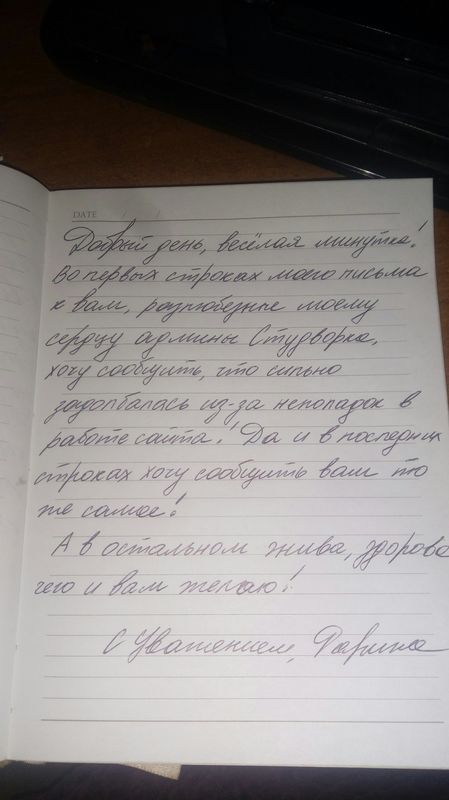 DATE
Добрый день, весёлая минутка!
Во первых строках моего письма
к вам, разлюбезные моему
сердцу админы Студворка,
хочу сообщить, что сильно
задолбалась из-за неполадок в
работе сайта! Да и в последних
строках хочу сообщить вам то
же самое!
А в остальном жива, здорова
чего и вам желаю!
С Уважением, Дарина